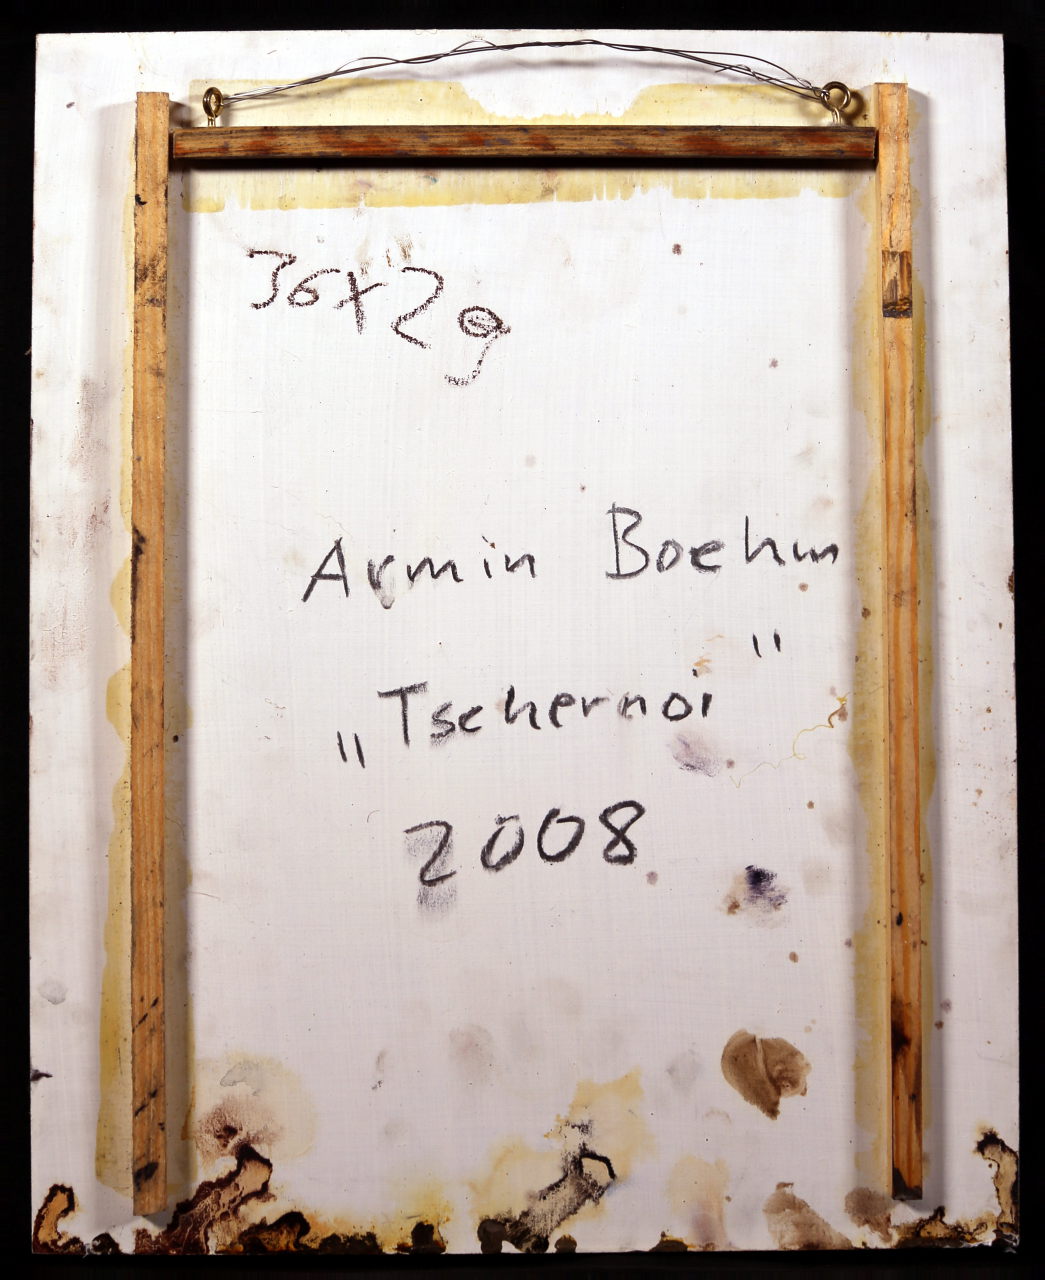 36x29
Armin Boehm
„Tschernoi"
2008